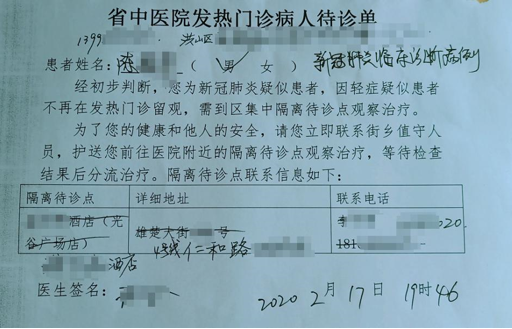 省中医院发热门诊病人待诊单
1399 洪山区
患者姓名：陈 （ 男 女 ） 新冠肺炎临床诊断病例
经初步判断，您为新冠肺炎疑似患者，因轻症疑似患者
不再在发热门诊留观，需到区集中隔离待诊点观察治疗。
为了您的健康和他人的安全，请您立即联系街乡值守人
员，护送您前往医院附近的隔离待诊点观察治疗，等待检查
结果后分流治疗。隔离待诊点联系信息如下：
隔离待诊点 详细地址 联系电话
酒店（光 雄楚大街 号 李 020
谷广场店） 仁和路 181
酒店
医生签名： 2020 2月 17日 19时46